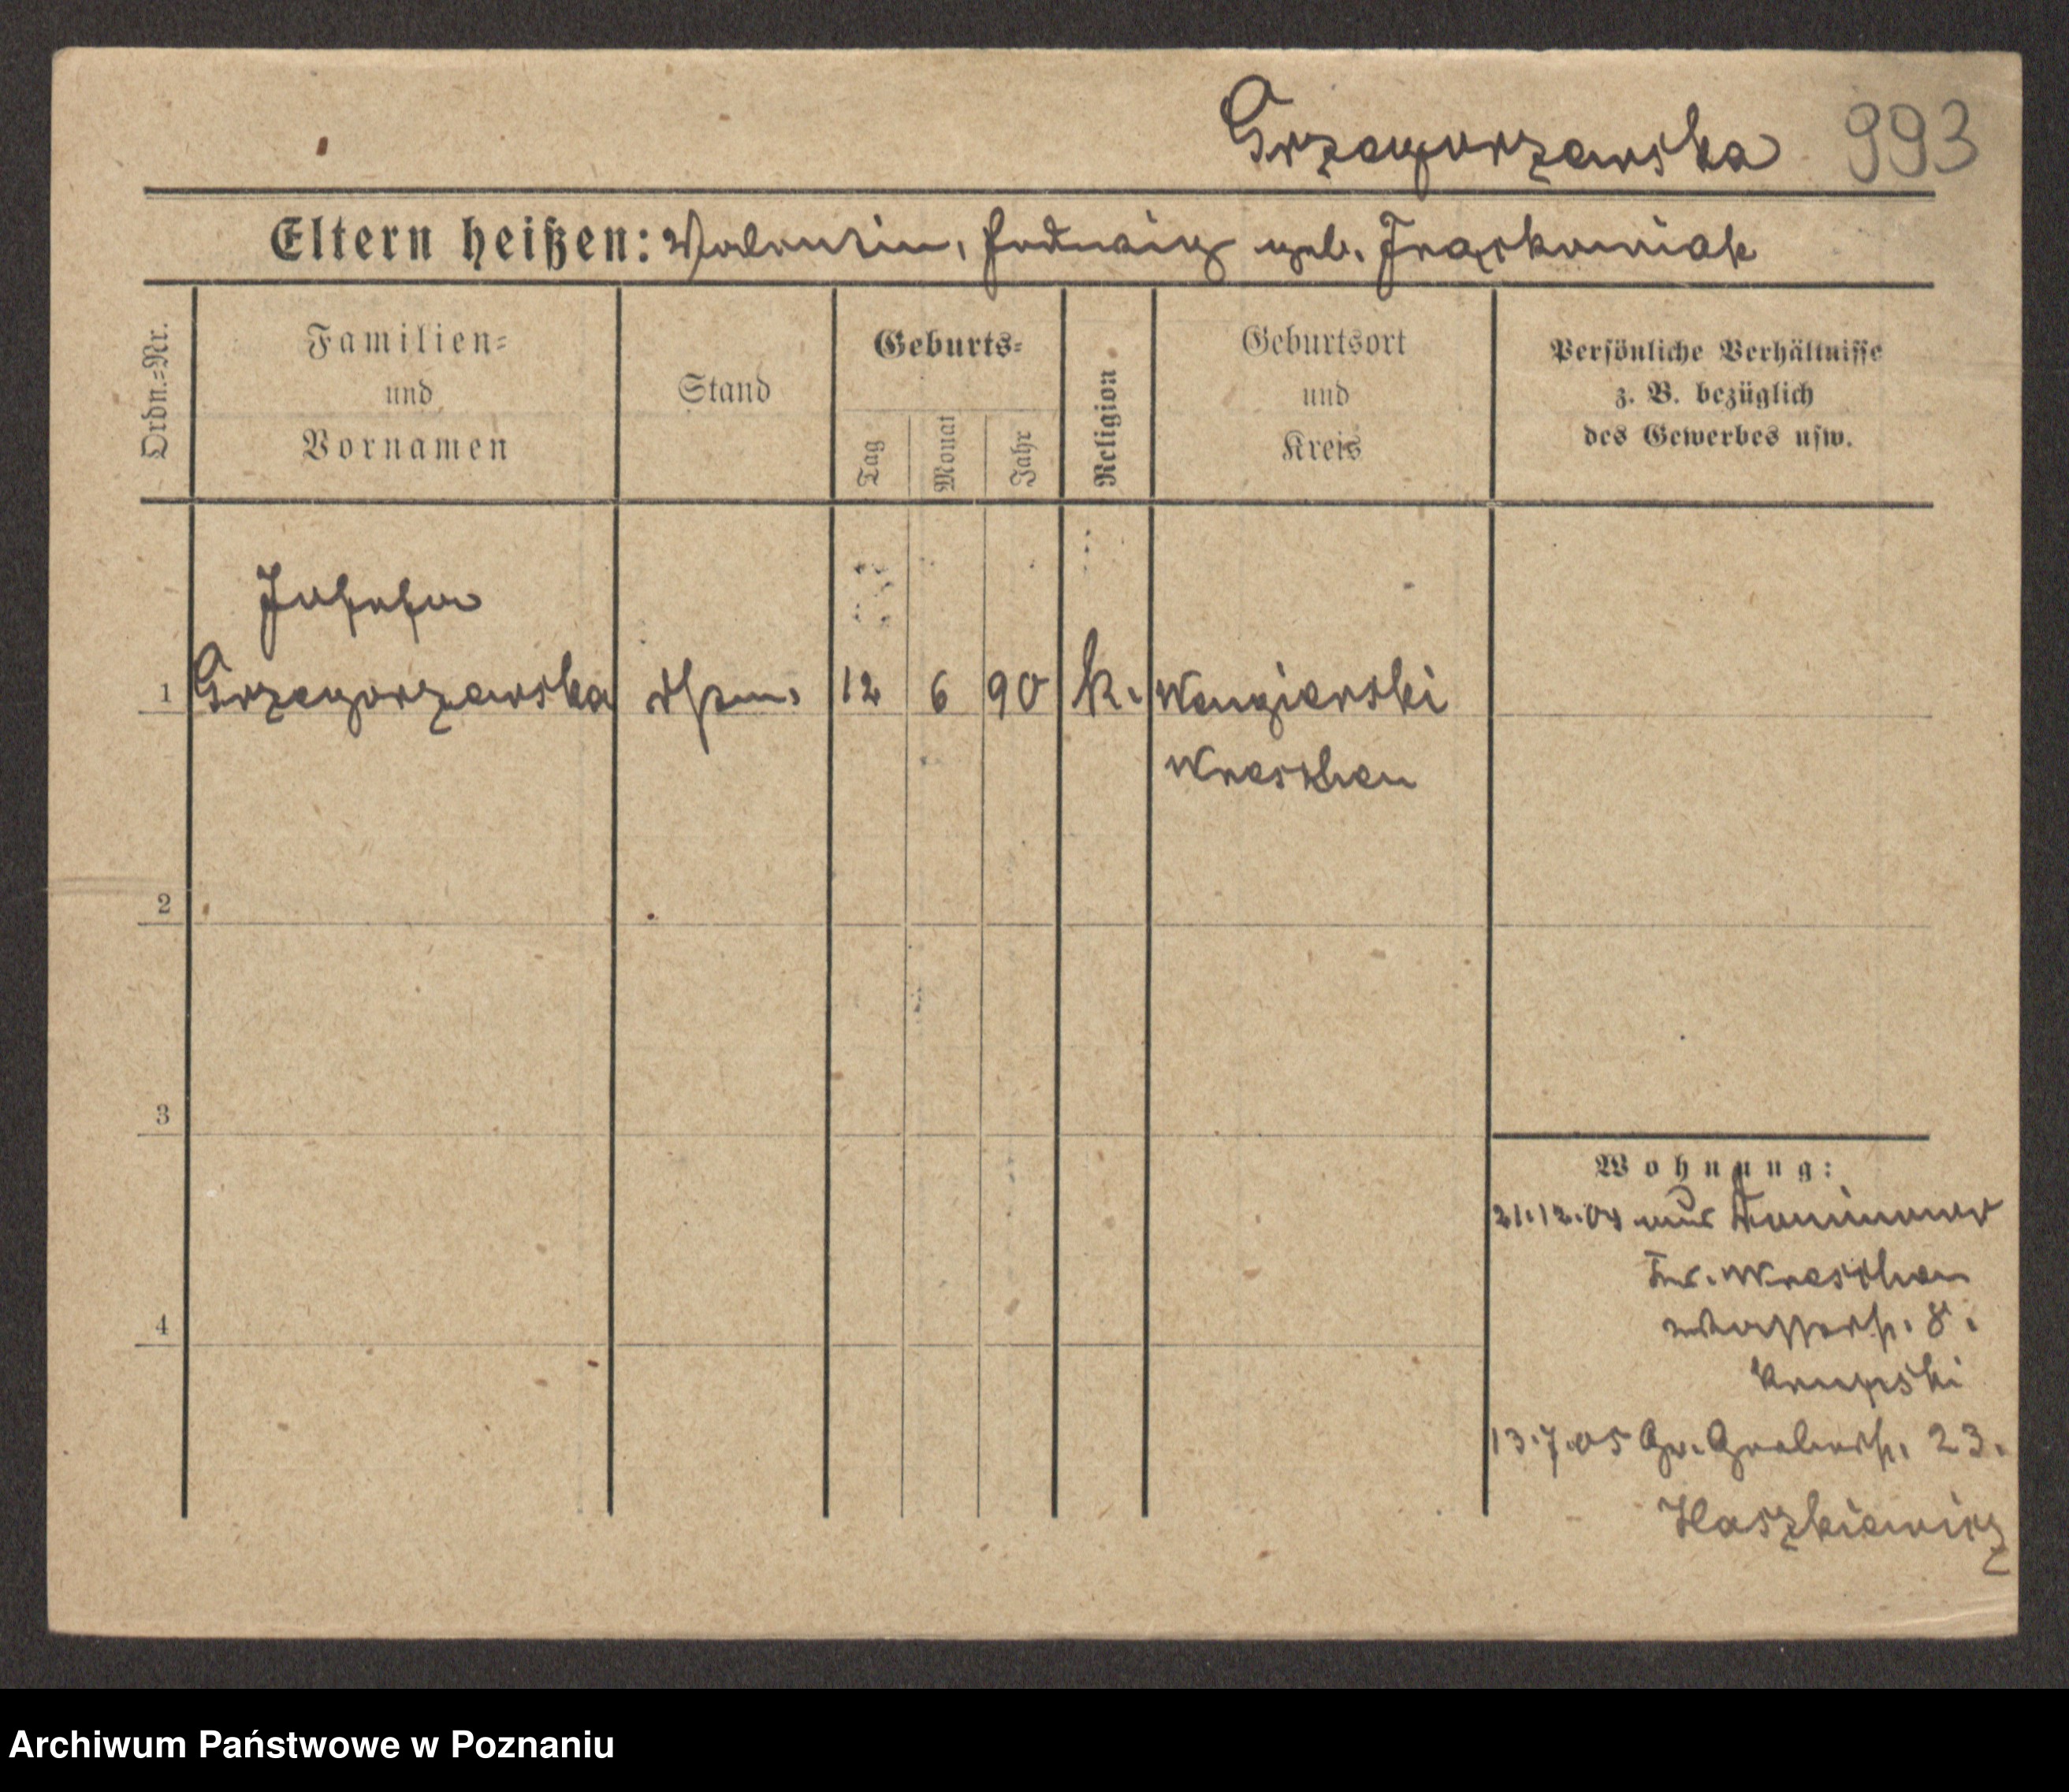 Grzegorzewska 993
Eltern heißen: Valentin, Hedwig geb.
Ordn.=Nr.
Familien=
und
Vornamen
Stand
Geburts=
Tag
Monat
Jahr
Religion
Geburtsort
und
Kreis
Persönliche Verhältnisse
z. B. bezüglich
des Gewerbes usw.
Josefa
1 Grzegorzewska 12 6 90 k. Wengierski
Wreschen
2
3
4
Wohnung:
21.12.04 aus
Kr. Wreschen
Wasserstr. 8.
Krupski
13.7.05 Gr. Gerberstr. 23.
Haszkiewicz
Archiwum Państwowe w Poznaniu